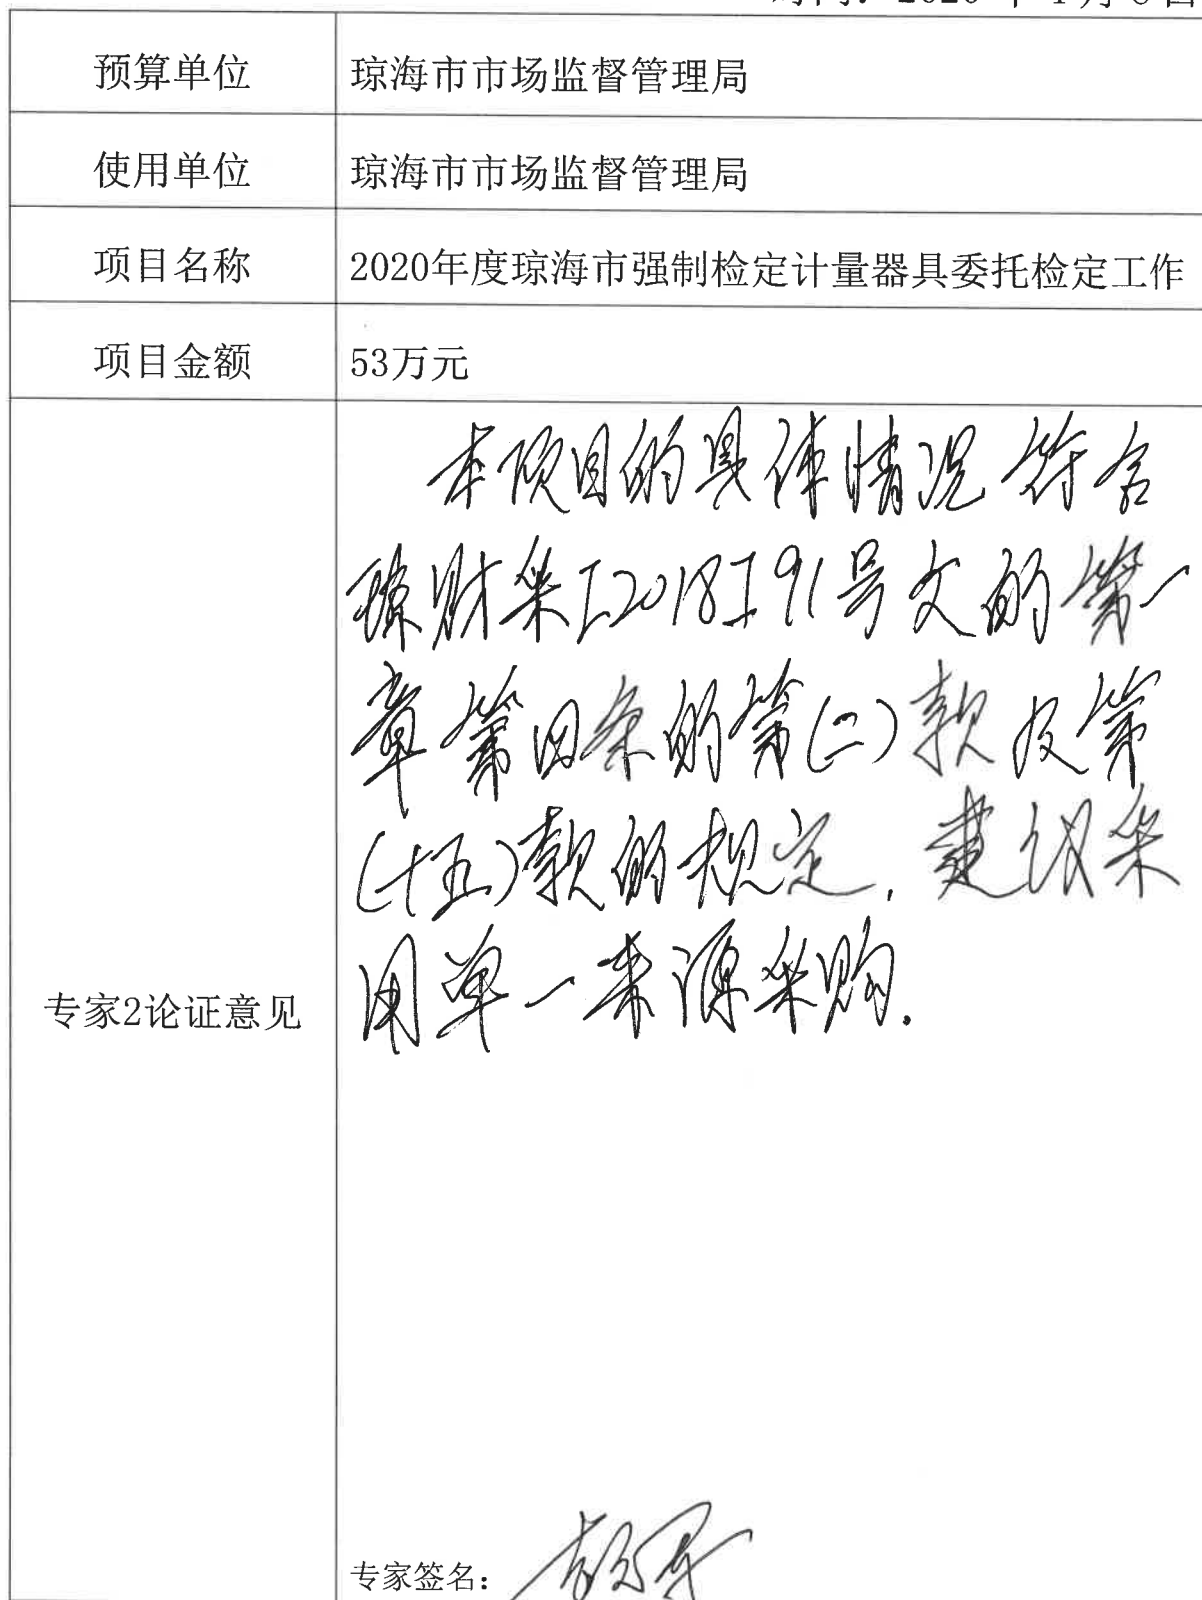 预算单位 琼海市市场监督管理局
使用单位 琼海市市场监督管理局
项目名称 2020年度琼海市强制检定计量器具委托检定工作
项目金额 53万元
专家2论证意见
本项目的具体情况符合
琼财采[2018]91号文的第一
章第四条的第(二)款及第
(十五)款的规定,建议采
用单一来源采购.
专家签名: